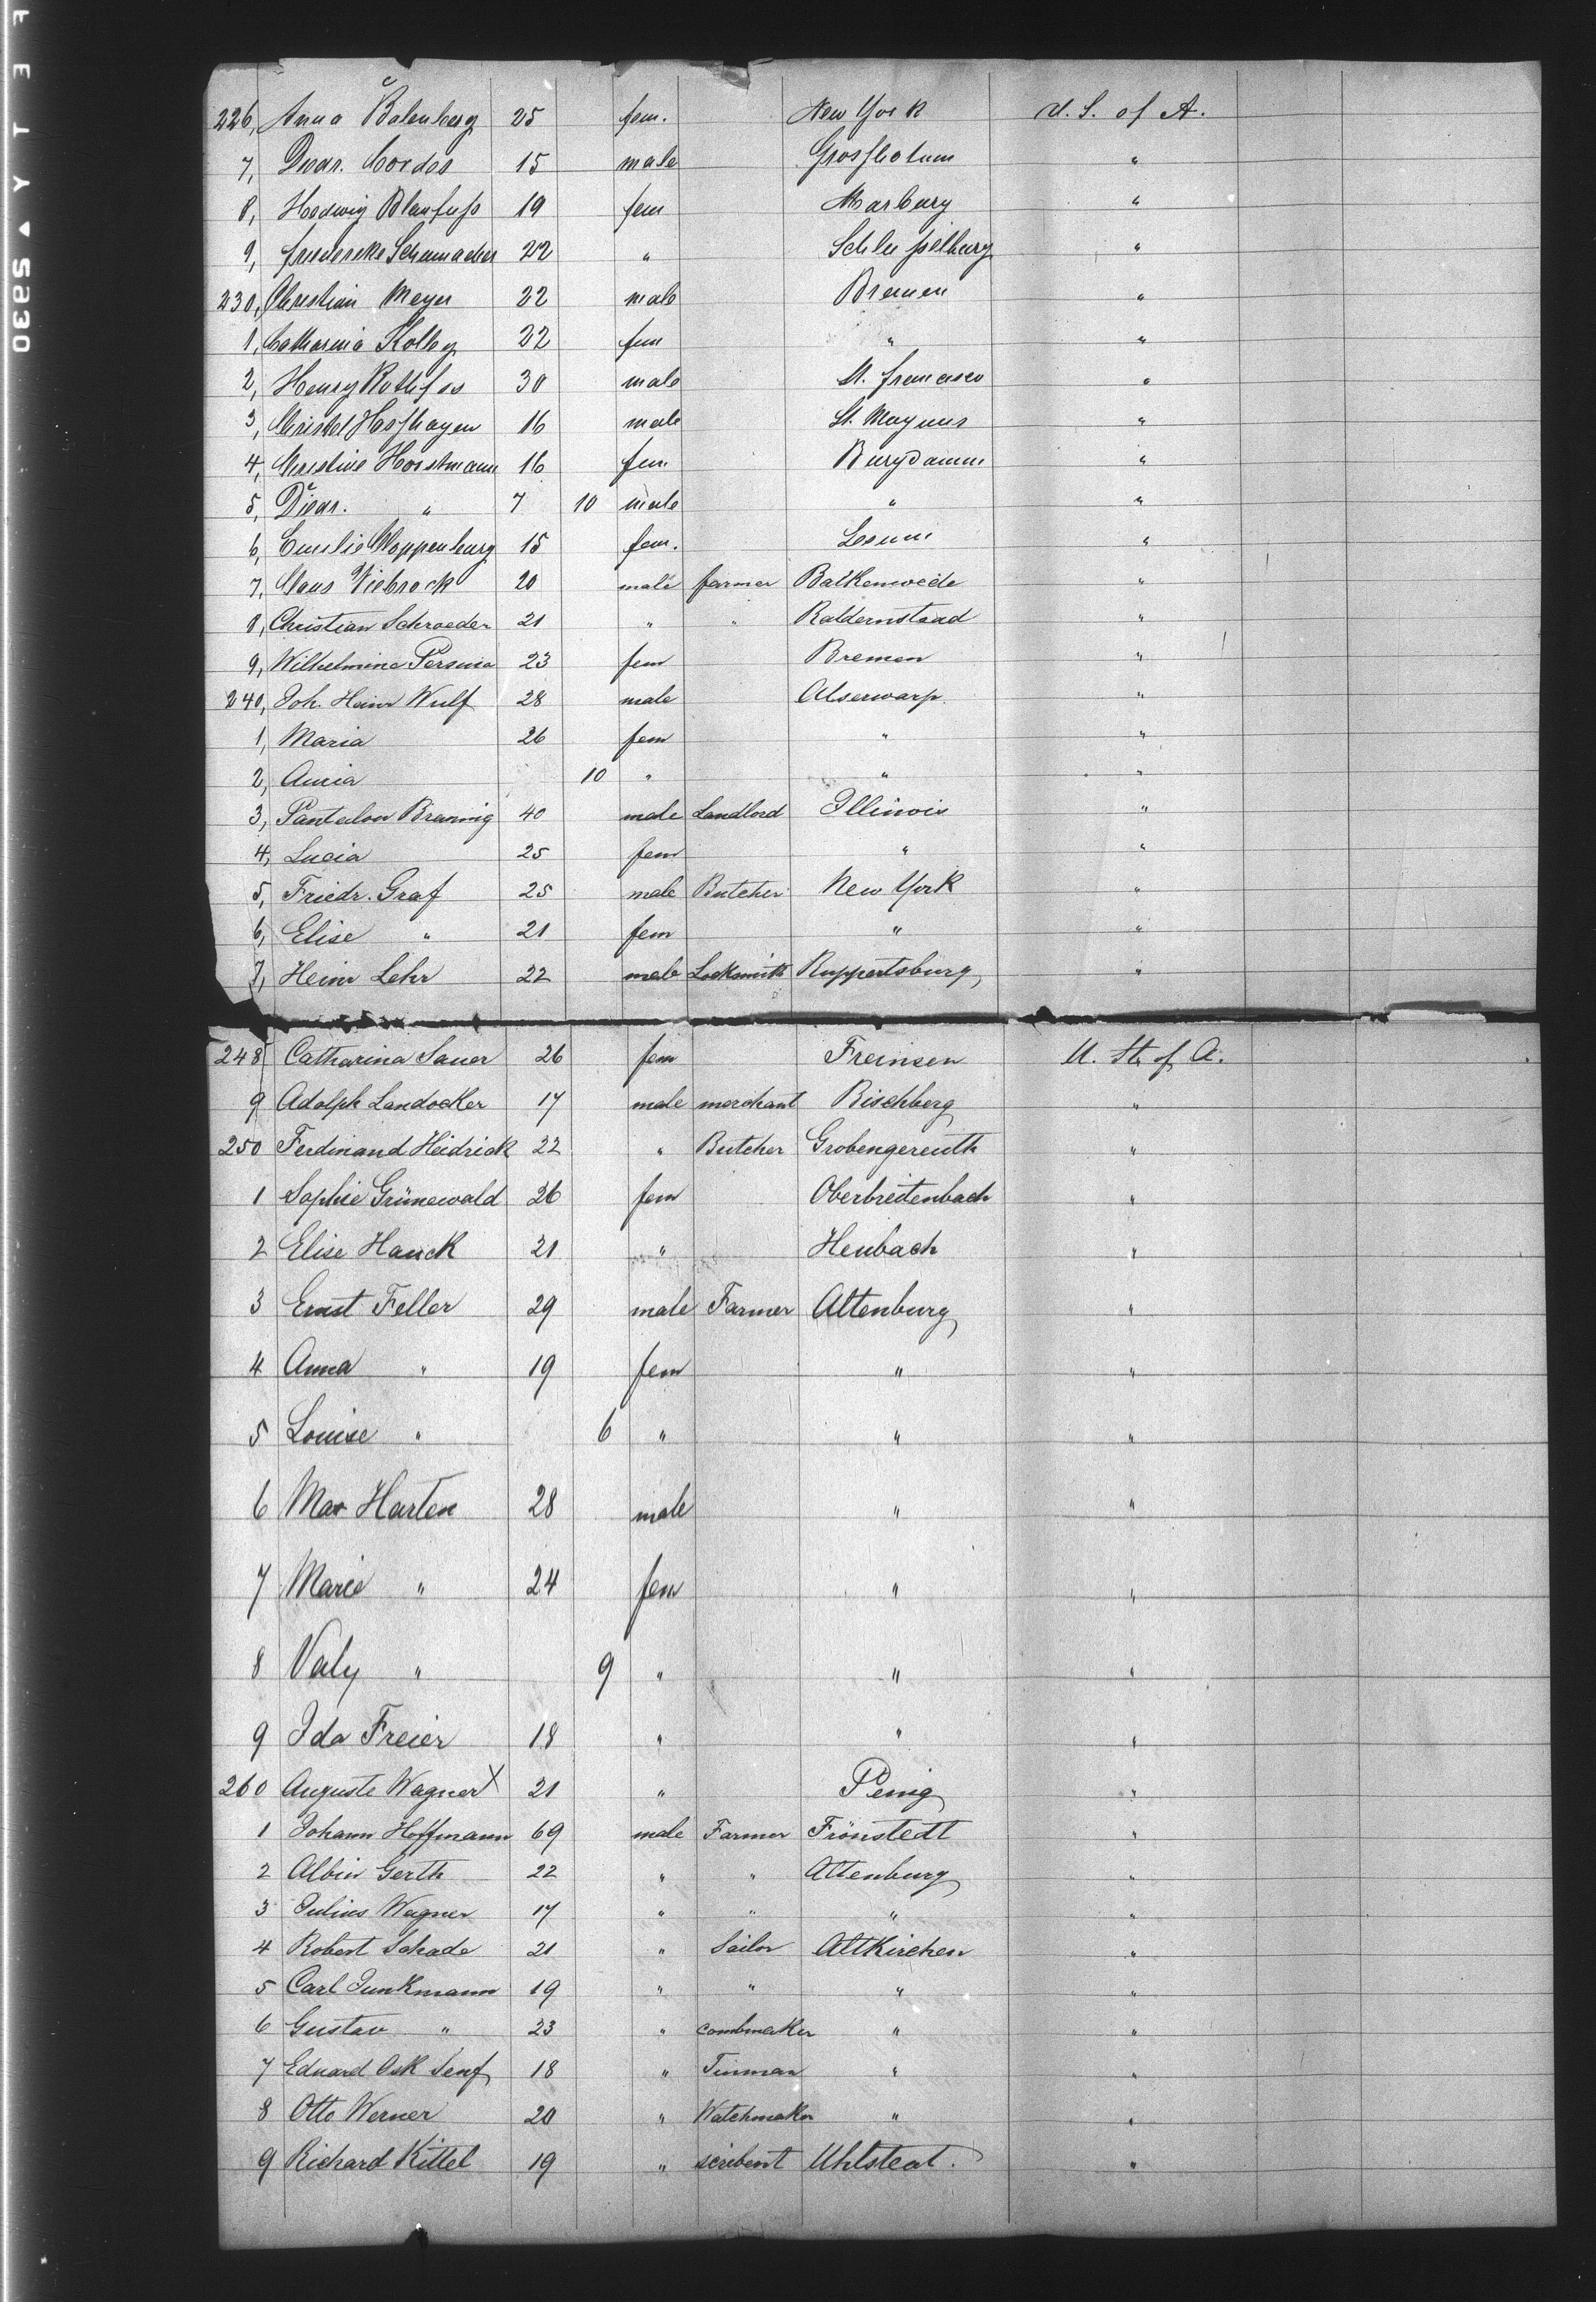 226, Anna Balenberg 25 fem. New York U. S. of A.
7, Diedr. Cordes 15 male "
8, Hedwig Blanfuß 19 fem Marburg "
9, Friedericke Schumacher 22 " Schlüsselburg "
230, Christian Meyer 22 male Bremen "
1, Catharina Kolby 22 fem " "
2, Henry Rothfos 30 male St. Francisco "
3, Christel Hofhagen 16 male St. Magnus "
4, Christine Horstmann 16 fem Burgdamm "
5, Diedr. " 7 10 male " "
6, Emilie Cloppenburg 15 fem. Lesum "
7, Claus Viebrock 20 male farmer Balkenwede "
8, Christian Schroeder 21 " " Baldernstaad "
9, Wilhelmine 23 fem Bremen "
240, Joh. Heinr Wulf 28 male Alserwarp. "
1, Maria 26 fem " "
2, Annia 10 " " "
3, Pantalon Brauning 40 male Landlord Illinois "
4, Lucia 25 fem " "
5, Friedr. Graf 25 male Butcher New York "
6, Elise " 21 fem " "
7, Heinr Lehr 22 male Locksmith Ruppertsburg "
248 Catharina Sauer 26 fem Freinsen U. St. of A.
9 Adolph Landocker 17 male merchant Bischberg "
250 Ferdinand Heidrick 22 " Butcher Grobengereuth "
1 Sophie Grünewald 26 fem Oberbreitenbach "
2 Elise Hauck 21 " Heubach "
3 Ernst Feller 29 male Farmer Altenburg "
4 Anna " 19 fem " "
5 Louise " 6 " " "
6 Max Harten 28 male " "
7 Marie " 24 fem " "
8 Valy " 9 " " "
9 Ida Freier 18 " " "
260 Auguste Wagner X 21 " Penig "
1 Johann Hoffmann 69 male Farmer Frönstedt "
2 Albin Gerth 22 " " Altenburg "
3 Julius Wagner 17 " " " "
4 Robert Schade 21 " Sailor Altkirchen "
5 Carl Junkmann 19 " " " "
6 Gustav " 23 " combmaker " "
7 Eduard Osk Senf 18 " Tinman " "
8 Otto Werner 20 " Watchmaker " "
9 Richard Kittel 19 " scribent Uhlsteat. "